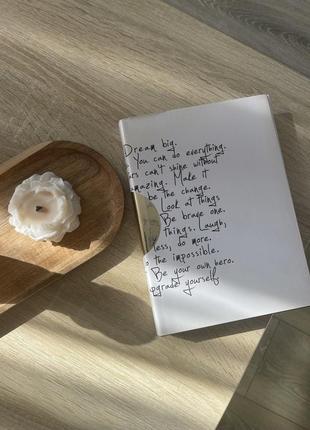 Dream big.
You can do everything.
ars can't shine without
amazing. Make it
be the change.
Look at things
Be brave one.
things. Laugh,
less, do more.
o the impossible.
Be your own hero.
pgrade yourself